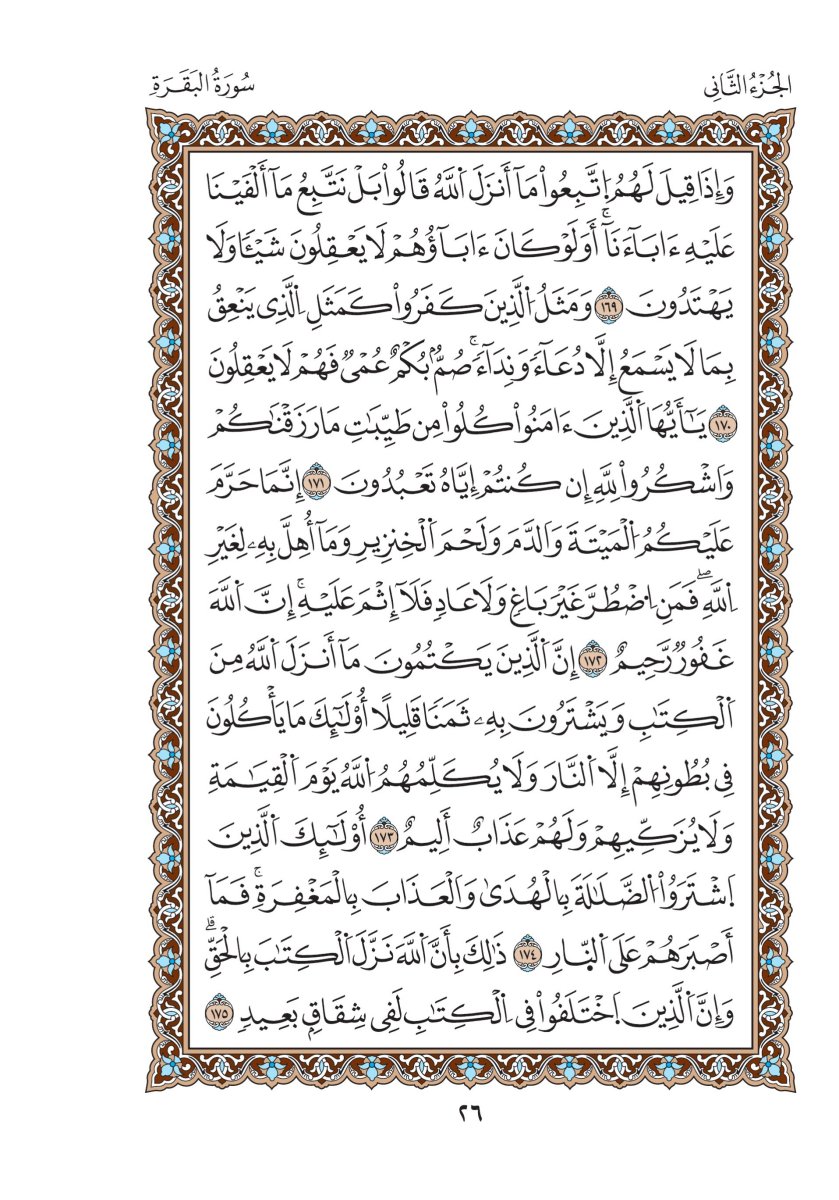 الجُزْءُ الثَّانِي
سُورَةُ البَقَرَةِ
وَإِذَا قِيلَ لَهُمُ اُ۪تَّبِعُواْ مَآ أَنزَلَ اَ۬للَّهُ قَالُواْ بَلْ نَتَّبِعُ مَآ أَلْفَيْنَا
عَلَيْهِ ءَابَآءَنَآۚ أَوَلَوْ كَانَ ءَابَآؤُهُمْ لَا يَعْقِلُونَ شَيْـٔٗا وَلَا
يَهْتَدُونَ ١٦٩ وَمَثَلُ اُ۬لَّذِينَ كَفَرُواْ كَمَثَلِ اِ۬لَّذِي يَنْعِقُ
بِمَا لَا يَسْمَعُ إِلَّا دُعَآءٗ وَنِدَآءٗۚ صُمُّۢ بُكْمٌ عُمْيٞ فَهُمْ لَا يَعْقِلُونَ
١٧٠ يَٰٓأَيُّهَا اَ۬لَّذِينَ ءَامَنُواْ كُلُواْ مِن طَيِّبَٰتِ مَا رَزَقْنَٰكُمْ
وَاشْكُرُواْ لِلهِ إِن كُنتُمْ إِيَّاهُ تَعْبُدُونَ ١٧١ إِنَّمَا حَرَّمَ
عَلَيْكُمُ اُ۬لْمَيْتَةَ وَالدَّمَ وَلَحْمَ اَ۬لْخِنزِيرِ وَمَآ أُهِلَّ بِهِۦ لِغَيْرِ
اِ۬للَّهِۖ فَمَنِ اِ۟ضْطُرَّ غَيْرَ بَاغٖ وَلَا عَادٖ فَلَآ إِثْمَ عَلَيْهِۚ إِنَّ اَ۬للَّهَ
غَفُورٞ رَّحِيمٌ ١٧٢ إِنَّ اَ۬لَّذِينَ يَكْتُمُونَ مَآ أَنزَلَ اَ۬للَّهُ مِنَ
اَ۬لْكِتَٰبِ وَيَشْتَرُونَ بِهِۦ ثَمَنٗا قَلِيلًا أُوْلَٰٓئِكَ مَا يَأْكُلُونَ
فِي بُطُونِهِمْ إِلَّا اَ۬لنَّارَ وَلَا يُكَلِّمُهُمُ اُ۬للَّهُ يَوْمَ اَ۬لْقِيَٰمَةِ
وَلَا يُزَكِّيهِمْ وَلَهُمْ عَذَابٌ أَلِيمٌ ١٧٣ أُوْلَٰٓئِكَ اَ۬لَّذِينَ
اَ۪شْتَرَوُاْ اُ۬لضَّلَٰلَةَ بِالْهُدَىٰ وَالْعَذَابَ بِالْمَغْفِرَةِۚ فَمَآ
أَصْبَرَهُمْ عَلَى اَ۬لنّ۪ارِ ١٧٤ ذَٰلِكَ بِأَنَّ اَ۬للَّهَ نَزَّلَ اَ۬لْكِتَٰبَ بِالْحَقِّۗ
وَإِنَّ اَ۬لَّذِينَ اَ۪خْتَلَفُواْ فِي اِ۬لْكِتَٰبِ لَفِي شِقَاقِۭ بَعِيدٖ ١٧٥
٢٦